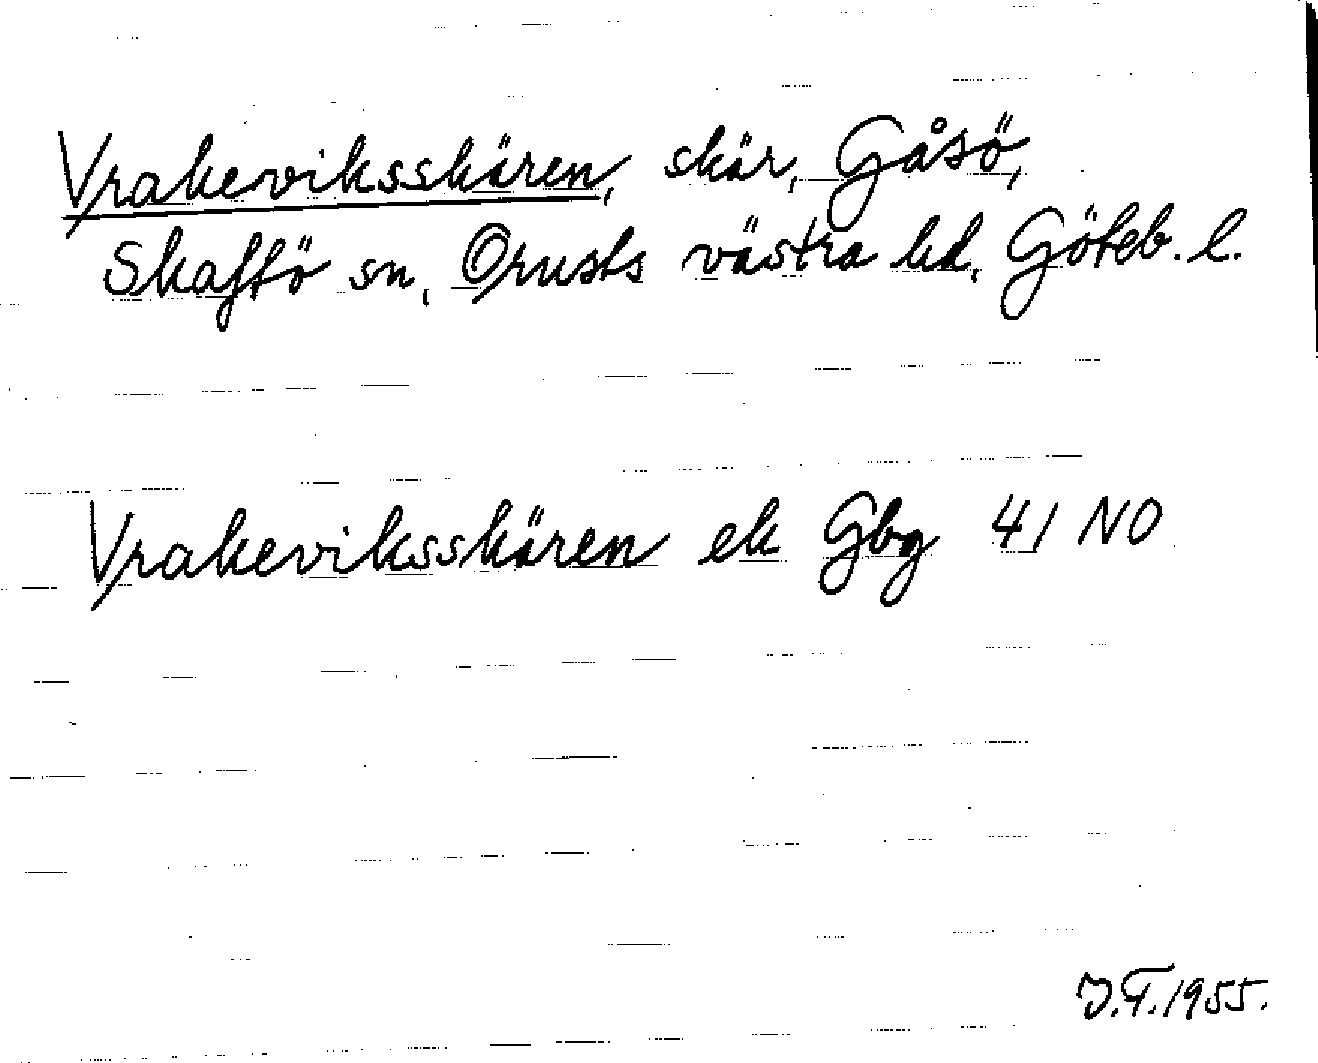 Vrakeviksskären, skär, Gåsö,
Skaftö sn, Orusts västra hd, Göteb. l.
Vrakeviksskären ek Gbg 41 NO
J.T. 1955.